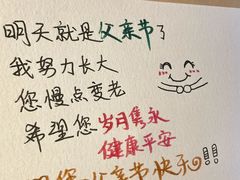 明天就是父亲节了
我努力长大
您慢点变老
希望您岁月隽永
健康平安
父亲节快乐!!!